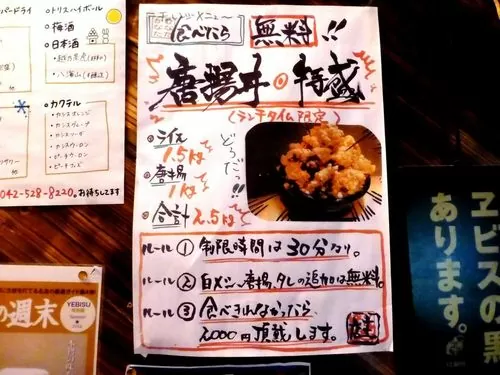 パードライ
○トリスハイボール
○梅酒
○日本酒
・越乃景虎
・八海山
○カクテル
・カシスオレンジ
・カシスグレープ
・カシスソーダ
・カシスウーロン
・ピーチウーロン
・ピーチフィズ
042-528-8220。お待ちしてます
チャレンジメニュー
食べたら
無料!!
唐揚丼。特盛
(ランチタイム限定)
○ライス
1.5kg
○唐揚
1kg
○合計 2.5kg
どうだっ!!
ルール① 制限時間は30分なり。
ルール② 白メシ、唐揚、タレの追加は無料。
ルール③ 食べきれなかったら
2,000円頂戴します。
店主
の週末
YEBISU
ヱビスの黒
あります。